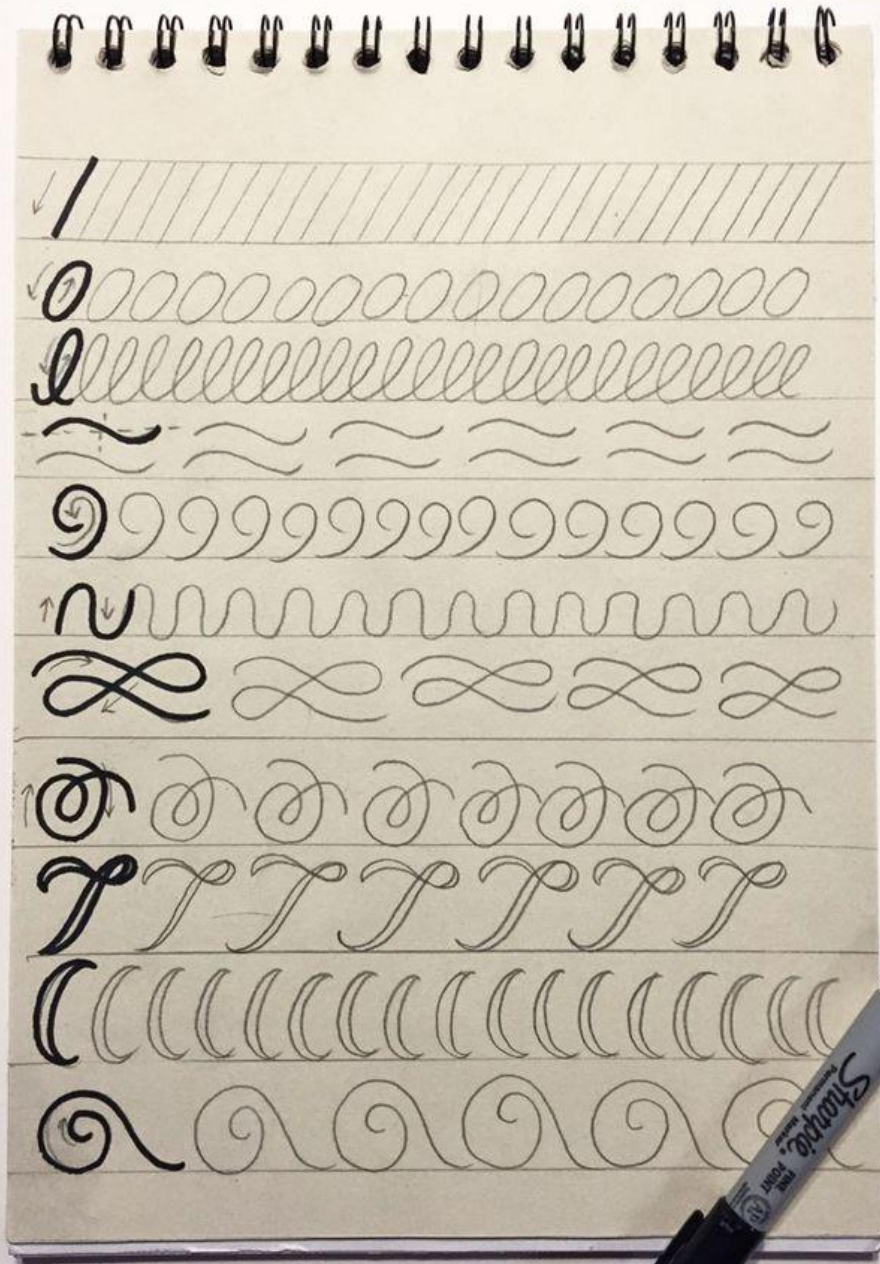 Sharpie®
Permanent Marker
FINE
POINT
AP